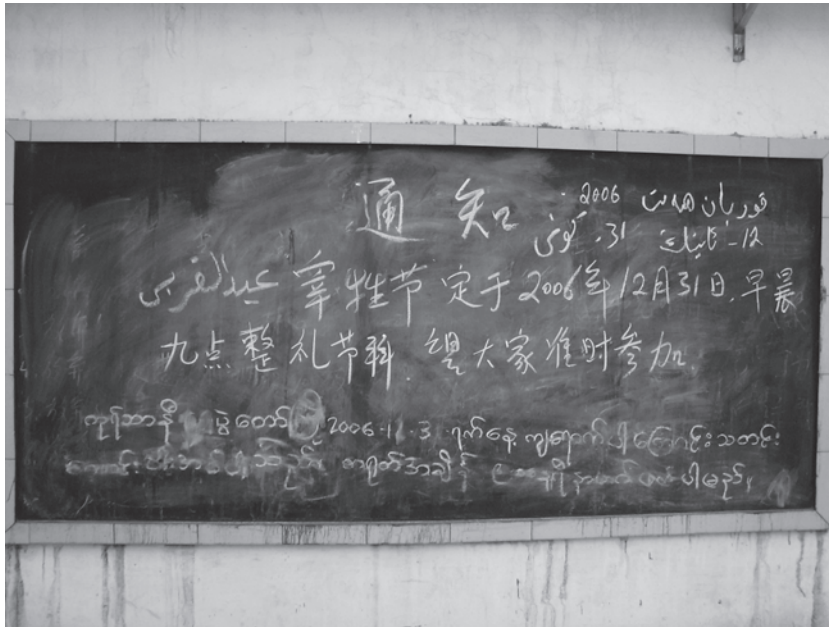 通知
قۇربان ھېيت 2006
12- ئاينىڭ 31. كۈنى
عيد القربى 宰牲节 定于2006年12月31日.早晨
九点整礼节拜.望大家准时参加.
ကုရ်ဘာနီ ပွဲတော် 2006. ရက်နေ့ ကျရောက်ပါကြောင်းသတင်း
တရုတ်အချိန် ၉ နာရီ ပါမည်။